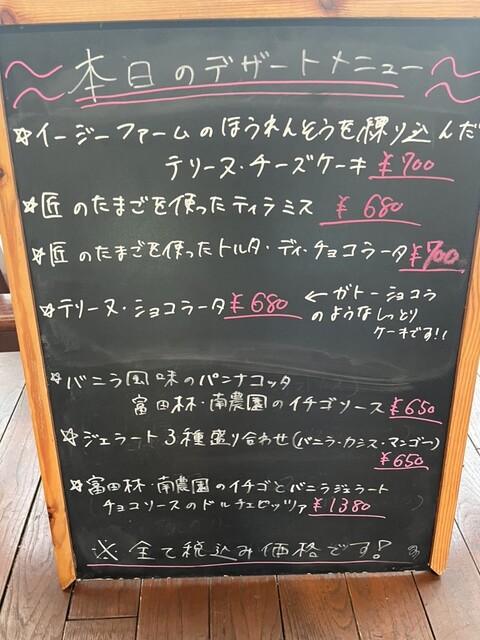 本日のデザートメニュー
☆イージーファームのほうれんそうを練り込んだ
テリーヌ・チーズケーキ ¥700
☆匠のたまごを使ったティラミス ¥680
☆匠のたまごを使ったトルタ・ディ・チョコラータ ¥700
☆テリーヌ・ショコラータ ¥680 ←ガトーショコラ
のようなしっとり
ケーキです!!
☆バニラ風味のパンナコッタ
富田林・南農園のイチゴソース ¥650
☆ジェラート3種盛り合わせ(バニラ・カシス・マンゴー)
¥650
☆富田林・南農園のイチゴとバニラジェラート
チョコソースのドルチェピッツァ ¥1380
※全て税込み価格です!